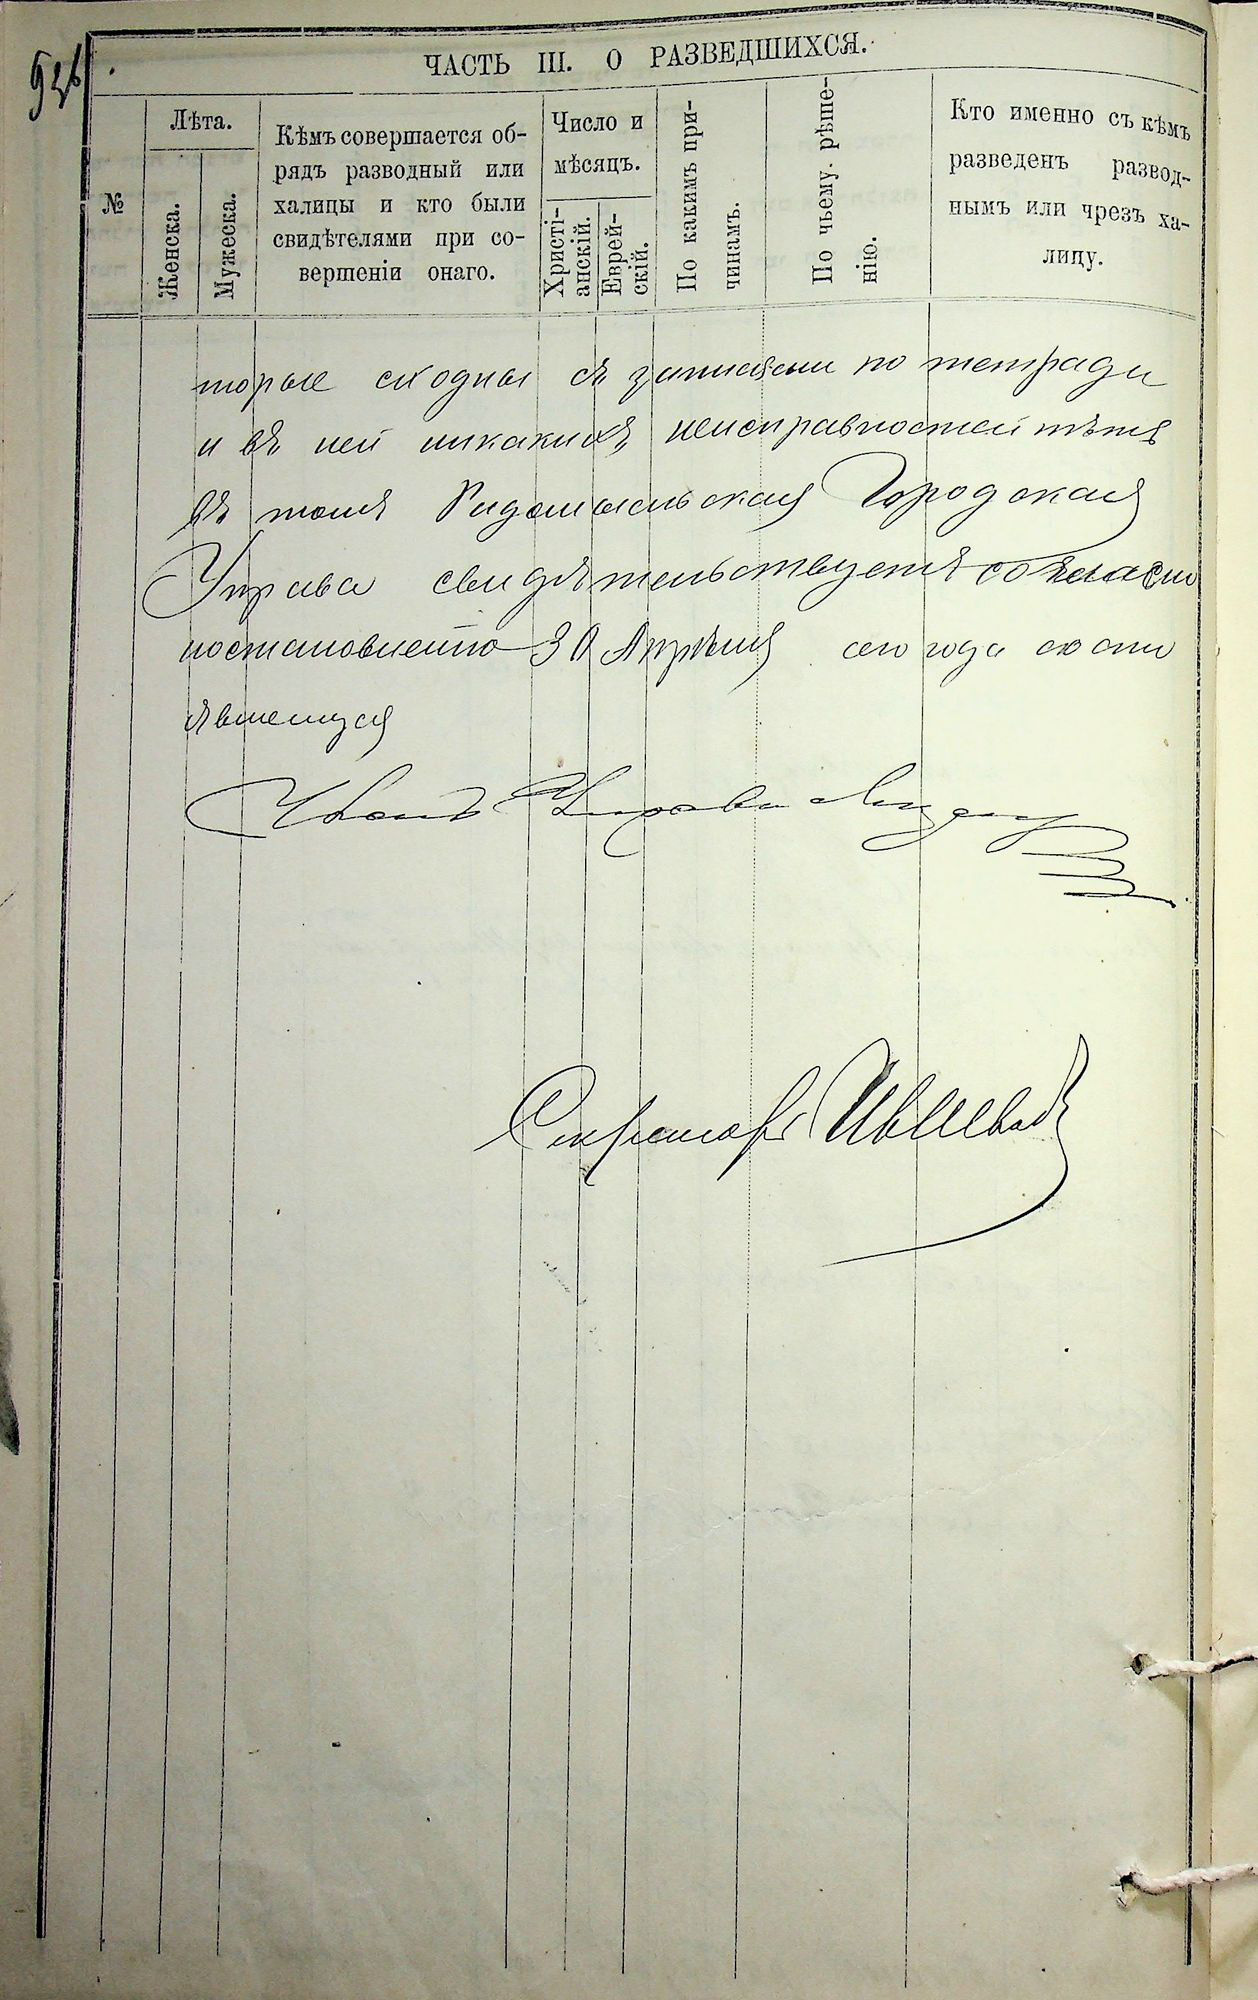 ЧАСТЬ III. О РАЗВЕДШИХСЯ.
№
Лѣта.
Женска.
Мужеска.
Кѣмъ совершается об-
рядъ разводный или
халицы и кто были
свидѣтелями при со-
вершеніи онаго.
Число и
мѣсяцъ.
Христі-
анскій.
Еврей-
скій.
По какимъ при-
чинамъ.
По чьему рѣше-
нію.
Кто именно съ кѣмъ
разведенъ развод-
нымъ или чрезъ ха-
лицу.
торые сходны съ записями по тетради
и въ ней никакихъ неисправностей нѣтъ
въ томъ Радомысльская Городская
Управа свидѣтельствуетъ согласно
постановленію 30 Апрѣля сего года состо
явшемуся
Членъ Управы
Секретарь